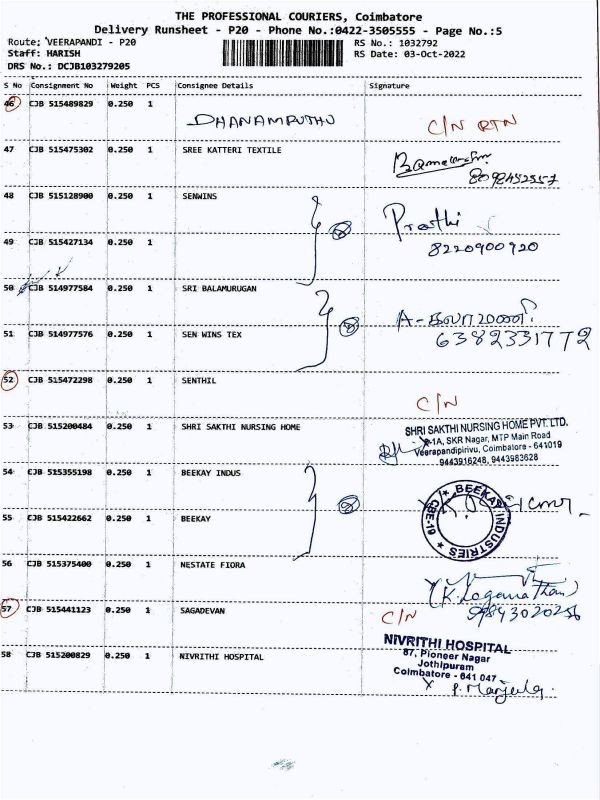 THE PROFESSIONAL COURIERS, Coimbatore
Delivery Runsheet - P20 - Phone No.:0422-3505555 - Page No.:5
Route: VEERAPANDI - P20 RS No.: 1032792
Staff: HARISH RS Date: 03-Oct-2022
DRS No.: DCJB103279205
S No Consignment No Weight PCS Consignee Details Signature
46 CJB 515489829 0.250 1 C/N RTN
47 CJB 515475302 0.250 1 SREE KATTERI TEXTILE
48 CJB 515128900 0.250 1 SENWINS Preethi
8220900920
49 CJB 515427134 0.250 1
50 CJB 514977584 0.250 1 SRI BALAMURUGAN
51 CJB 514977576 0.250 1 SEN WINS TEX 6382331772
52 CJB 515472298 0.250 1 SENTHIL
C/N
53 CJB 515200484 0.250 1 SHRI SAKTHI NURSING HOME SHRI SAKTHI NURSING HOME PVT. LTD.
SKR Nagar, MTP Main Road
Veerapandipirivu, Coimbatore - 641019
9443916248, 9443983628
54 CJB 515355198 0.250 1 BEEKAY INDUS
55 CJB 515422662 0.250 1 BEEKAY BEEKAY INDUSTRIES CBE-19
56 CJB 515375400 0.250 1 NESTATE FIORA
(K.Loganathan)
57 CJB 515441123 0.250 1 SAGADEVAN C/N
58 CJB 515200829 0.250 1 NIVRITHI HOSPITAL NIVRITHI HOSPITAL
87, Pioneer Nagar
Jothipuram
Coimbatore - 641 047
P. Manjula